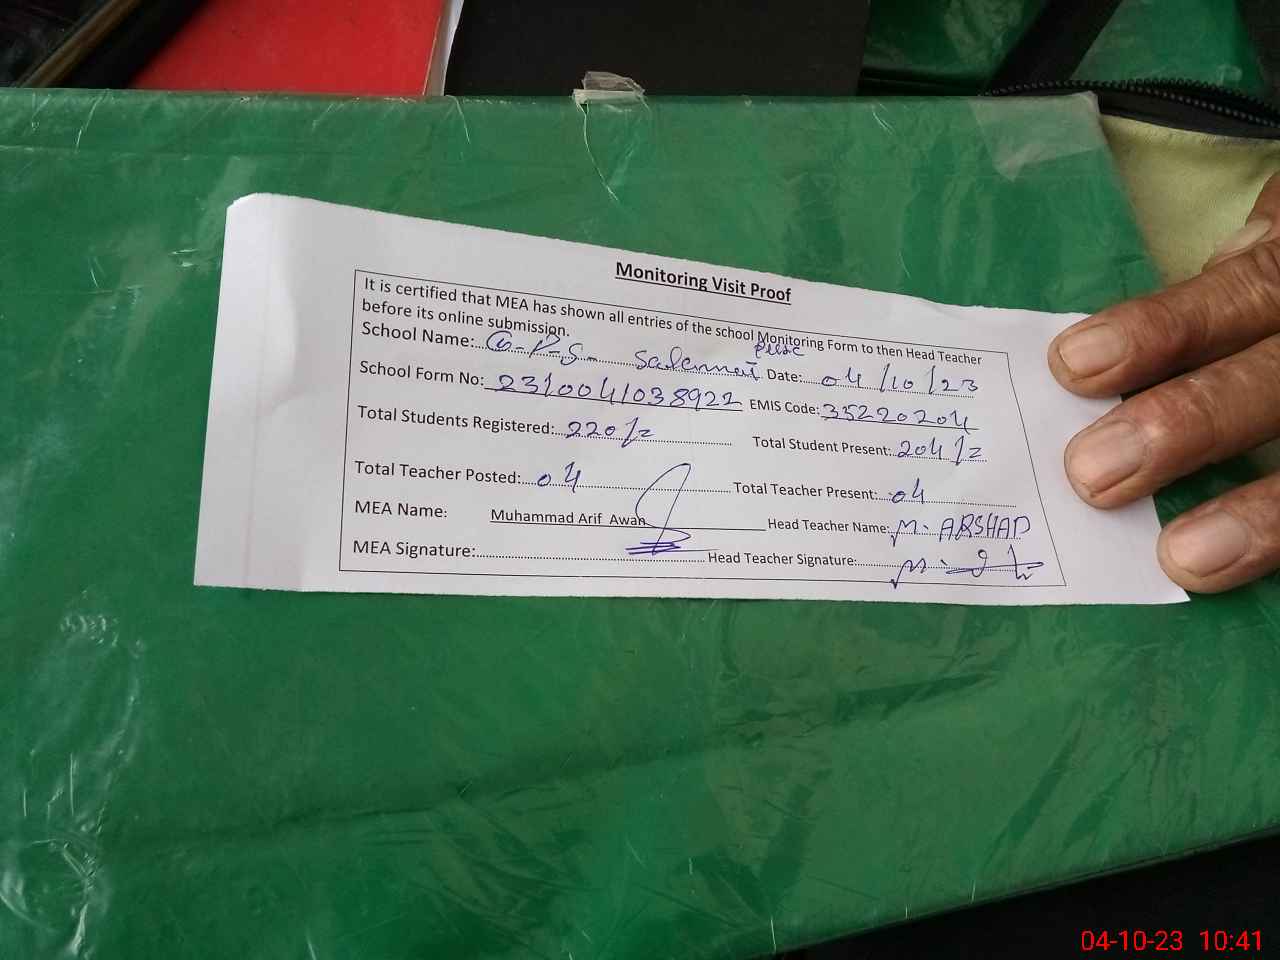 Monitoring Visit Proof
It is certified that MEA has shown all entries of the school Monitoring Form to then Head Teacher
before its online submission.
School Name: G.P.S. Salamat Date: 04/10/23
School Form No: 2310041038922 EMIS Code: 35220204
Total Students Registered: 220/= Total Student Present: 204/=
Total Teacher Posted: 04 Total Teacher Present: 04
MEA Name: Muhammad Arif Awan Head Teacher Name: M. ARSHAD
MEA Signature: Head Teacher Signature:
04-10-23 10:41